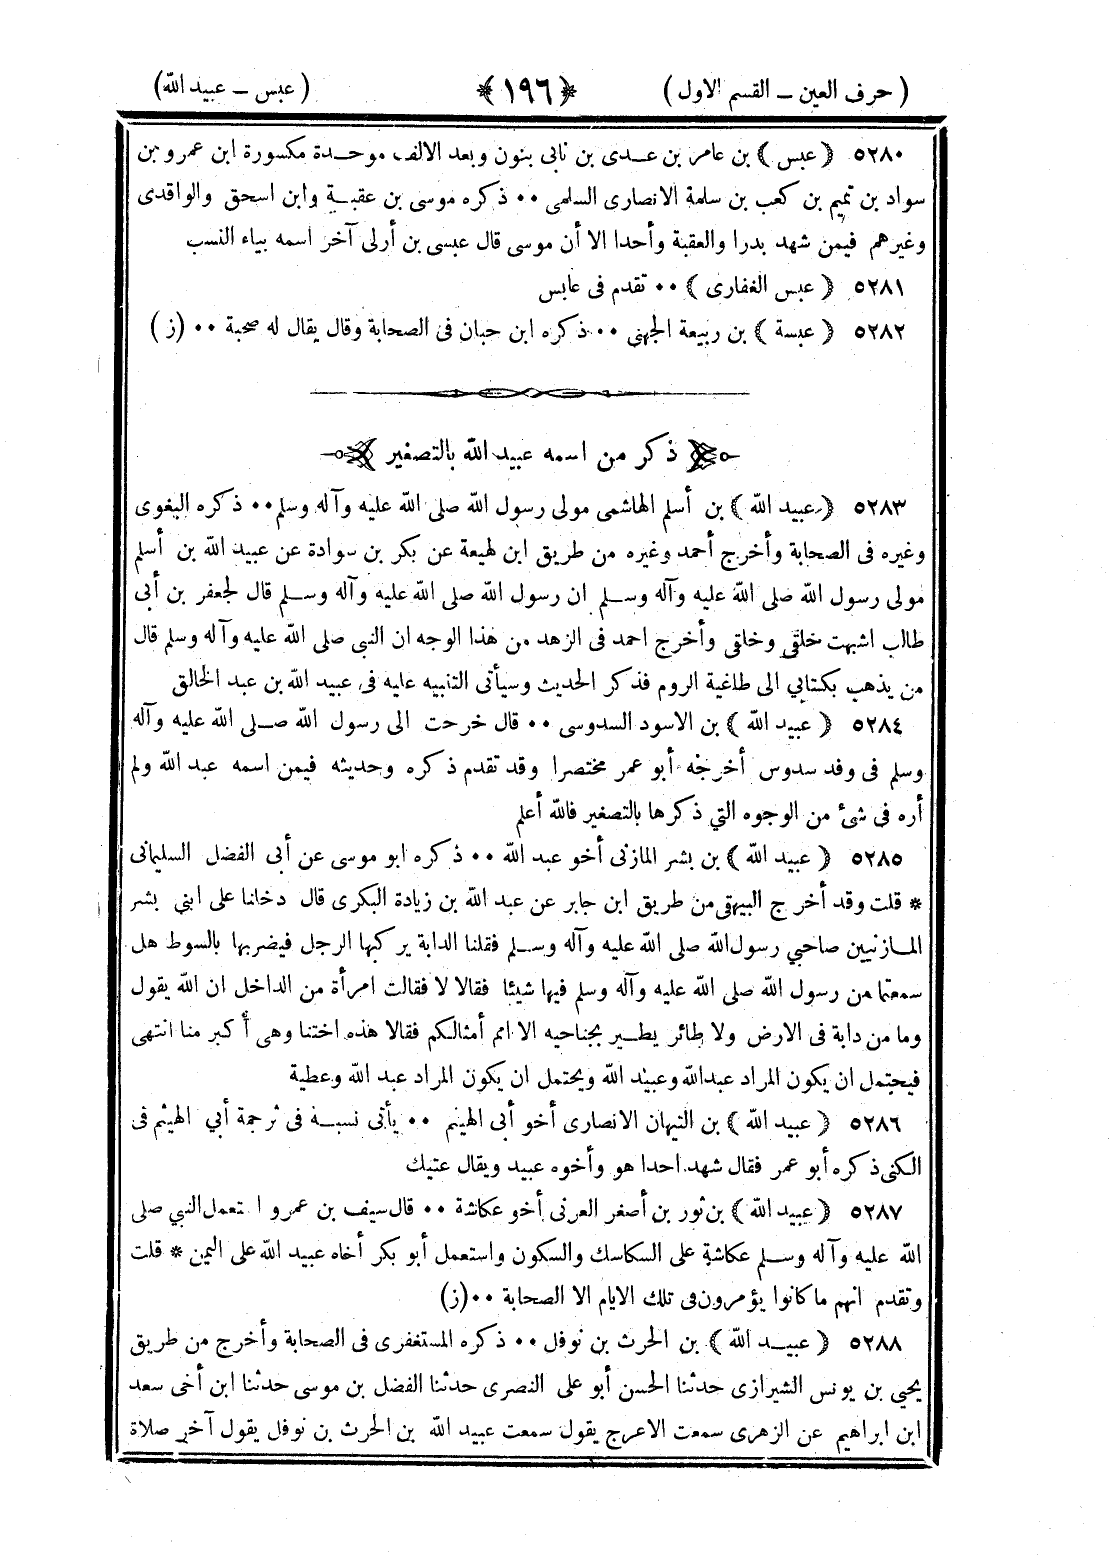 ( حرف العين ــ القسم الاول ) ﴿ ١٩٦ ﴾ ( عبس ــ عبيد الله )
٥٢٨٠ ﴿ عبس ﴾ بن عامر بن عـدى بن نابى بنون وبعد الالف موحـدة مكسورة ابن عمرو بن
سواد بن تميم بن كعب بن سلمة الانصارى السلمى ٠٠ ذكره موسى بن عقبـة وابن اسحق والواقدى
وغيرهم فيمن شهد بدرا والعقبة وأحدا الا أن موسى قال عبسى بن أرلى آخر اسمه بياء النسب
٥٢٨١ ﴿ عبس الغفارى ﴾ ٠٠ تقدم فى عابس
٥٢٨٢ ﴿ عبسة ﴾ بن ربيعة الجهنى ٠٠ ذكره ابن حبان فى الصحابة وقال يقال له صحبة ٠٠ (ز)
ذكر من اسمه عبيد الله بالتصغير
٥٢٨٣ ﴿ عبيد الله ﴾ بن أسلم الهاشمى مولى رسول الله صلى الله عليه وآله وسلم ٠٠ ذكره البغوى
وغيره فى الصحابة وأخرج أحمد وغيره من طريق ابن لهيعة عن بكر بن سوادة عن عبيد الله بن أسلم
مولى رسول الله صلى الله عليه وآله وسـلم ان رسول الله صلى الله عليه وآله وسـلم قال لجعفر بن أبى
طالب اشبهت خلقى وخلقى وأخرج احمد فى الزهد من هذا الوجه ان النبى صلى الله عليه وآله وسلم قال
من يذهب بكتابي الى طاغية الروم فذكر الحديث وسيأتى التنبيه عليه فى عبيد الله بن عبد الخالق
٥٢٨٤ ﴿ عبيد الله ﴾ بن الاسود السدوسى ٠٠ قال خرجت الى رسول الله صـلى الله عليه وآله
وسلم فى وفد سدوس أخرجه أبو عمر مختصرا وقد تقدم ذكره وحديثه فيمن اسمه عبد الله ولم
أره فى شئ من الوجوه التي ذكرها بالتصغير فالله أعلم
٥٢٨٥ ﴿ عبيد الله ﴾ بن بشر المازنى أخو عبد الله ٠٠ ذكره ابو موسى عن أبى الفضل السليمانى
* قلت وقد أخرج البيهقى من طريق ابن جابر عن عبد الله بن زيادة البكرى قال دخلنا على ابني بشر
المـازنيين صاحبي رسول الله صلى الله عليه وآله وسـلم فقلنا الدابة يركبها الرجل فيضربها بالسوط هل
سمعتما من رسول الله صلى الله عليه وآله وسلم فيها شيئا فقالا لا فقالت امرأة من الداخل ان الله يقول
وما من دابة فى الارض ولا طائر يطـير بجناحيه الا امم أمثالكم فقالا هذه اختنا وهى أكبر منا انتهى
فيحتمل ان يكون المراد عبد الله وعبيد الله ويحتمل ان يكون المراد عبد الله وعطية
٥٢٨٦ ﴿ عبيد الله ﴾ بن التيهان الانصارى أخو أبى الهيثم ٠٠ يأتى نسبـة فى ترجمة أبي الهيثم فى
الكنى ذكره أبو عمر فقال شهد احدا هو وأخوه عبيد ويقال عتيك
٥٢٨٧ ﴿ عبيد الله ﴾ بن ثور بن أصغر العرنى أخو عكاشة ٠٠ قال سيف بن عمرو ا تعمل النبي صلى
الله عليه وآله وسـلم عكاشة على السكاسك والسكون واستعمل أبو بكر أخاه عبيد الله على اليمن * قلت
وتقدم انهم ما كانوا يؤمرون فى تلك الايام الا الصحابة ٠٠ (ز)
٥٢٨٨ ﴿ عبيـد الله ﴾ بن الحرث بن نوفل ٠٠ ذكره المستغفرى فى الصحابة وأخرج من طريق
يحيى بن يونس الشيرازى حدثنا الحسن أبو على النصرى حدثنا الفضل بن موسى حدثنا ابن أخى سعد
ابن ابراهيم عن الزهرى سمعت الاعرج يقول سمعت عبيد الله بن الحرث بن نوفل يقول آخر صلاة